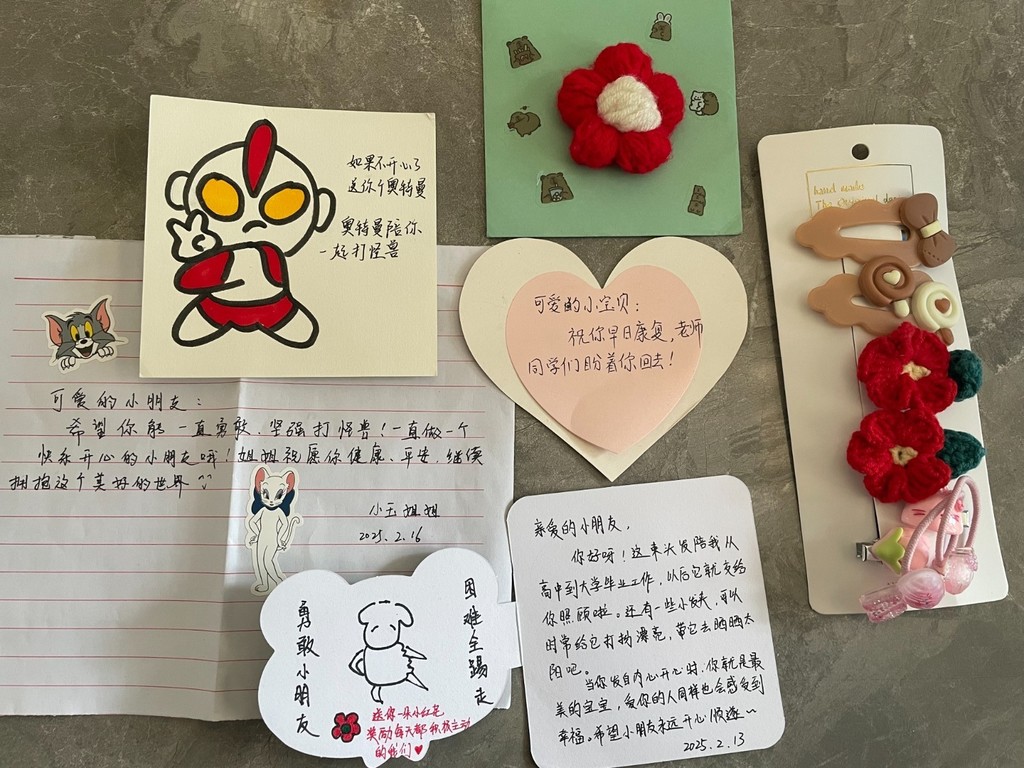 如果不开心了
送你个奥特曼
奥特曼陪你
一起打怪兽
hand made
The
可爱的小宝贝：
祝你早日康复，老师
同学们盼着你回去！
可爱的小朋友：
希望你能一直勇敢、坚强打怪兽！一直做一个
快乐开心的小朋友哦！姐姐祝愿你健康、平安，继续
拥抱这个美好的世界
小玉姐姐
2025.2.16
勇敢小朋友
困难全踢走
送你一朵小红花
奖励每天都积极主动
的我们
亲爱的小朋友，
你好呀！这束头发陪我从
高中到大学毕业工作，以后它就交给
你照顾啦。还有一些小发夹，可以
时常给它打扮漂亮，带它去晒晒太
阳吧。
当你发自内心开心时，你就是最
美的宝宝，爱你的人同样也会感受到
幸福。希望小朋友永远开心顺遂~
2025.2.13